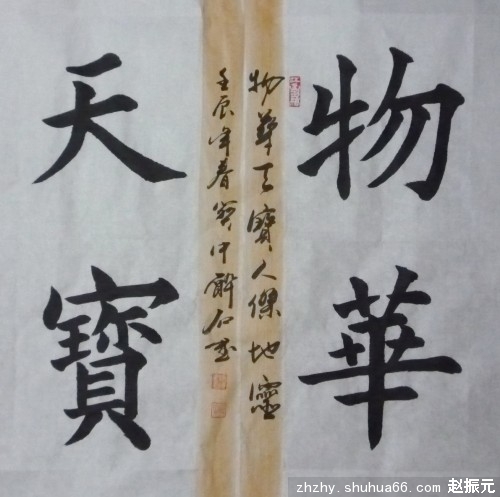 物華
物華天寶人傑地靈
壬辰年春寶中
天寶
zhzhy.shuhua66.com 赵振元